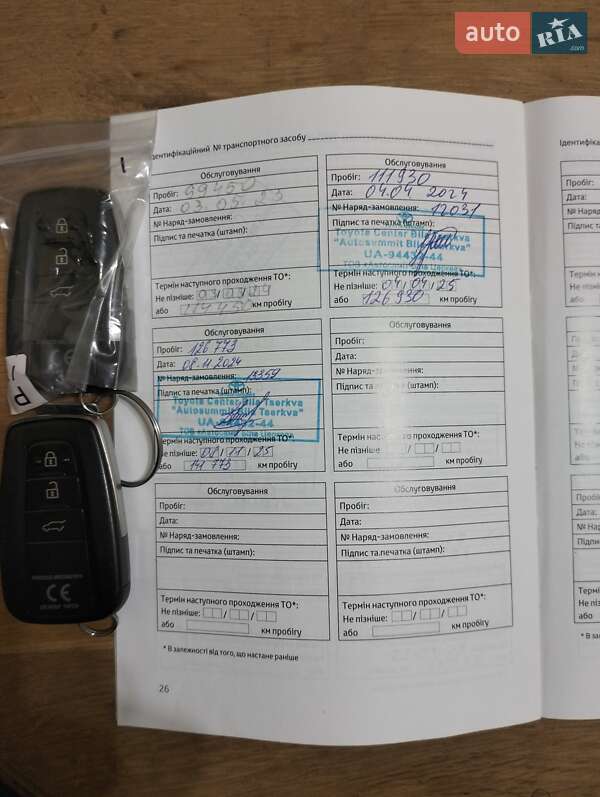 auto RIA .com
дентифікаційний № транспортного засобу
Обслуговування
Пробіг: 99450
Дата: 03.05.23
№ Наряд-замовлення:
Підпис та печатка (штамп):
Термін наступного проходження ТО*:
Не пізніше:
або км пробігу
Обслуговування
Пробіг: 111930
Дата: 04.04 2024
№ Наряд-замовлення: 12031
Підпис та печатка (штамп):
Toyota Center Bila Tserkva
"Autosummit Bila Tserkva"
Термін наступного проходження ТО*:
Не пізніше: 04/04/25
або 126 930 км пробігу
Обслуговування
Пробіг: 126 773
Дата: 08.11.2024
№ Наряд-замовлення: 13359
Підпис та печатка (штамп):
Toyota Center Bila Tserkva
"Autosummit Bila Tserkva"
Термін наступного проходження ТО*:
Не пізніше: 08/11/25
або км пробігу
Обслуговування
Пробіг:
Дата:
№ Наряд-замовлення:
Підпис та печатка (штамп):
Термін наступного проходження ТО*:
Не пізніше:
або км пробігу
Обслуговування
Пробіг:
Дата:
№ Наряд-замовлення:
Підпис та печатка (штамп):
Термін наступного проходження ТО*:
Не пізніше:
або км пробігу
Обслуговування
Пробіг:
Дата:
№ Наряд-замовлення:
Підпис та печатка (штамп):
Термін наступного проходження ТО*:
Не пізніше:
або км пробігу
* В залежності від того, що настане раніше
26
CE